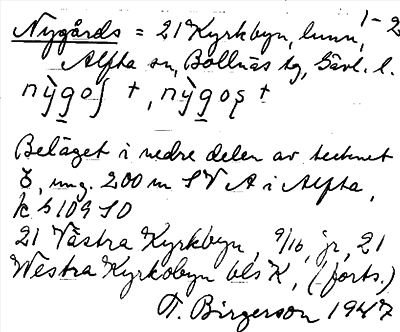 Nygårds = 21 Kyrkbyn, hmn, 1-2
Alfta sn, Bollnäs tg, Gävl. l.
nỳgoʃ +, nỳgoş +
Beläget i nedre delen av tecknet
8, ung. 200 m SV A i Alfta,
k b 109 SO
21 Västra Kyrkbyn, 9/16, jr, 21
Westra Kyrkobyn bls K, (forts.)
T. Birgerson 1947